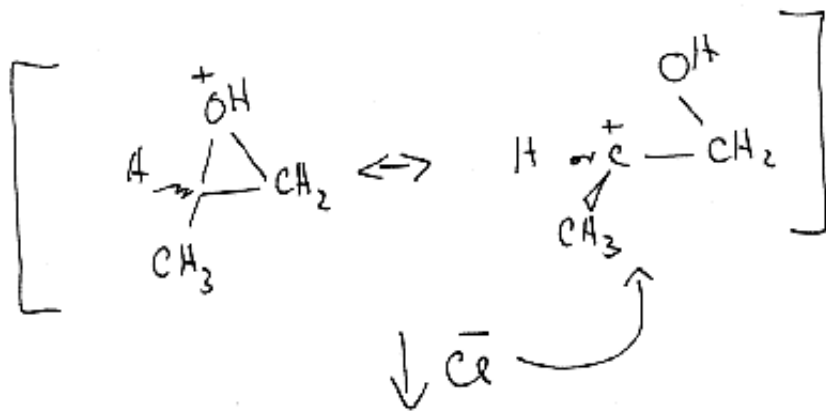 +
OH
H
CH₂
CH₃
↔
OH
H
+
C — CH₂
CH₃
↓ Cl⁻